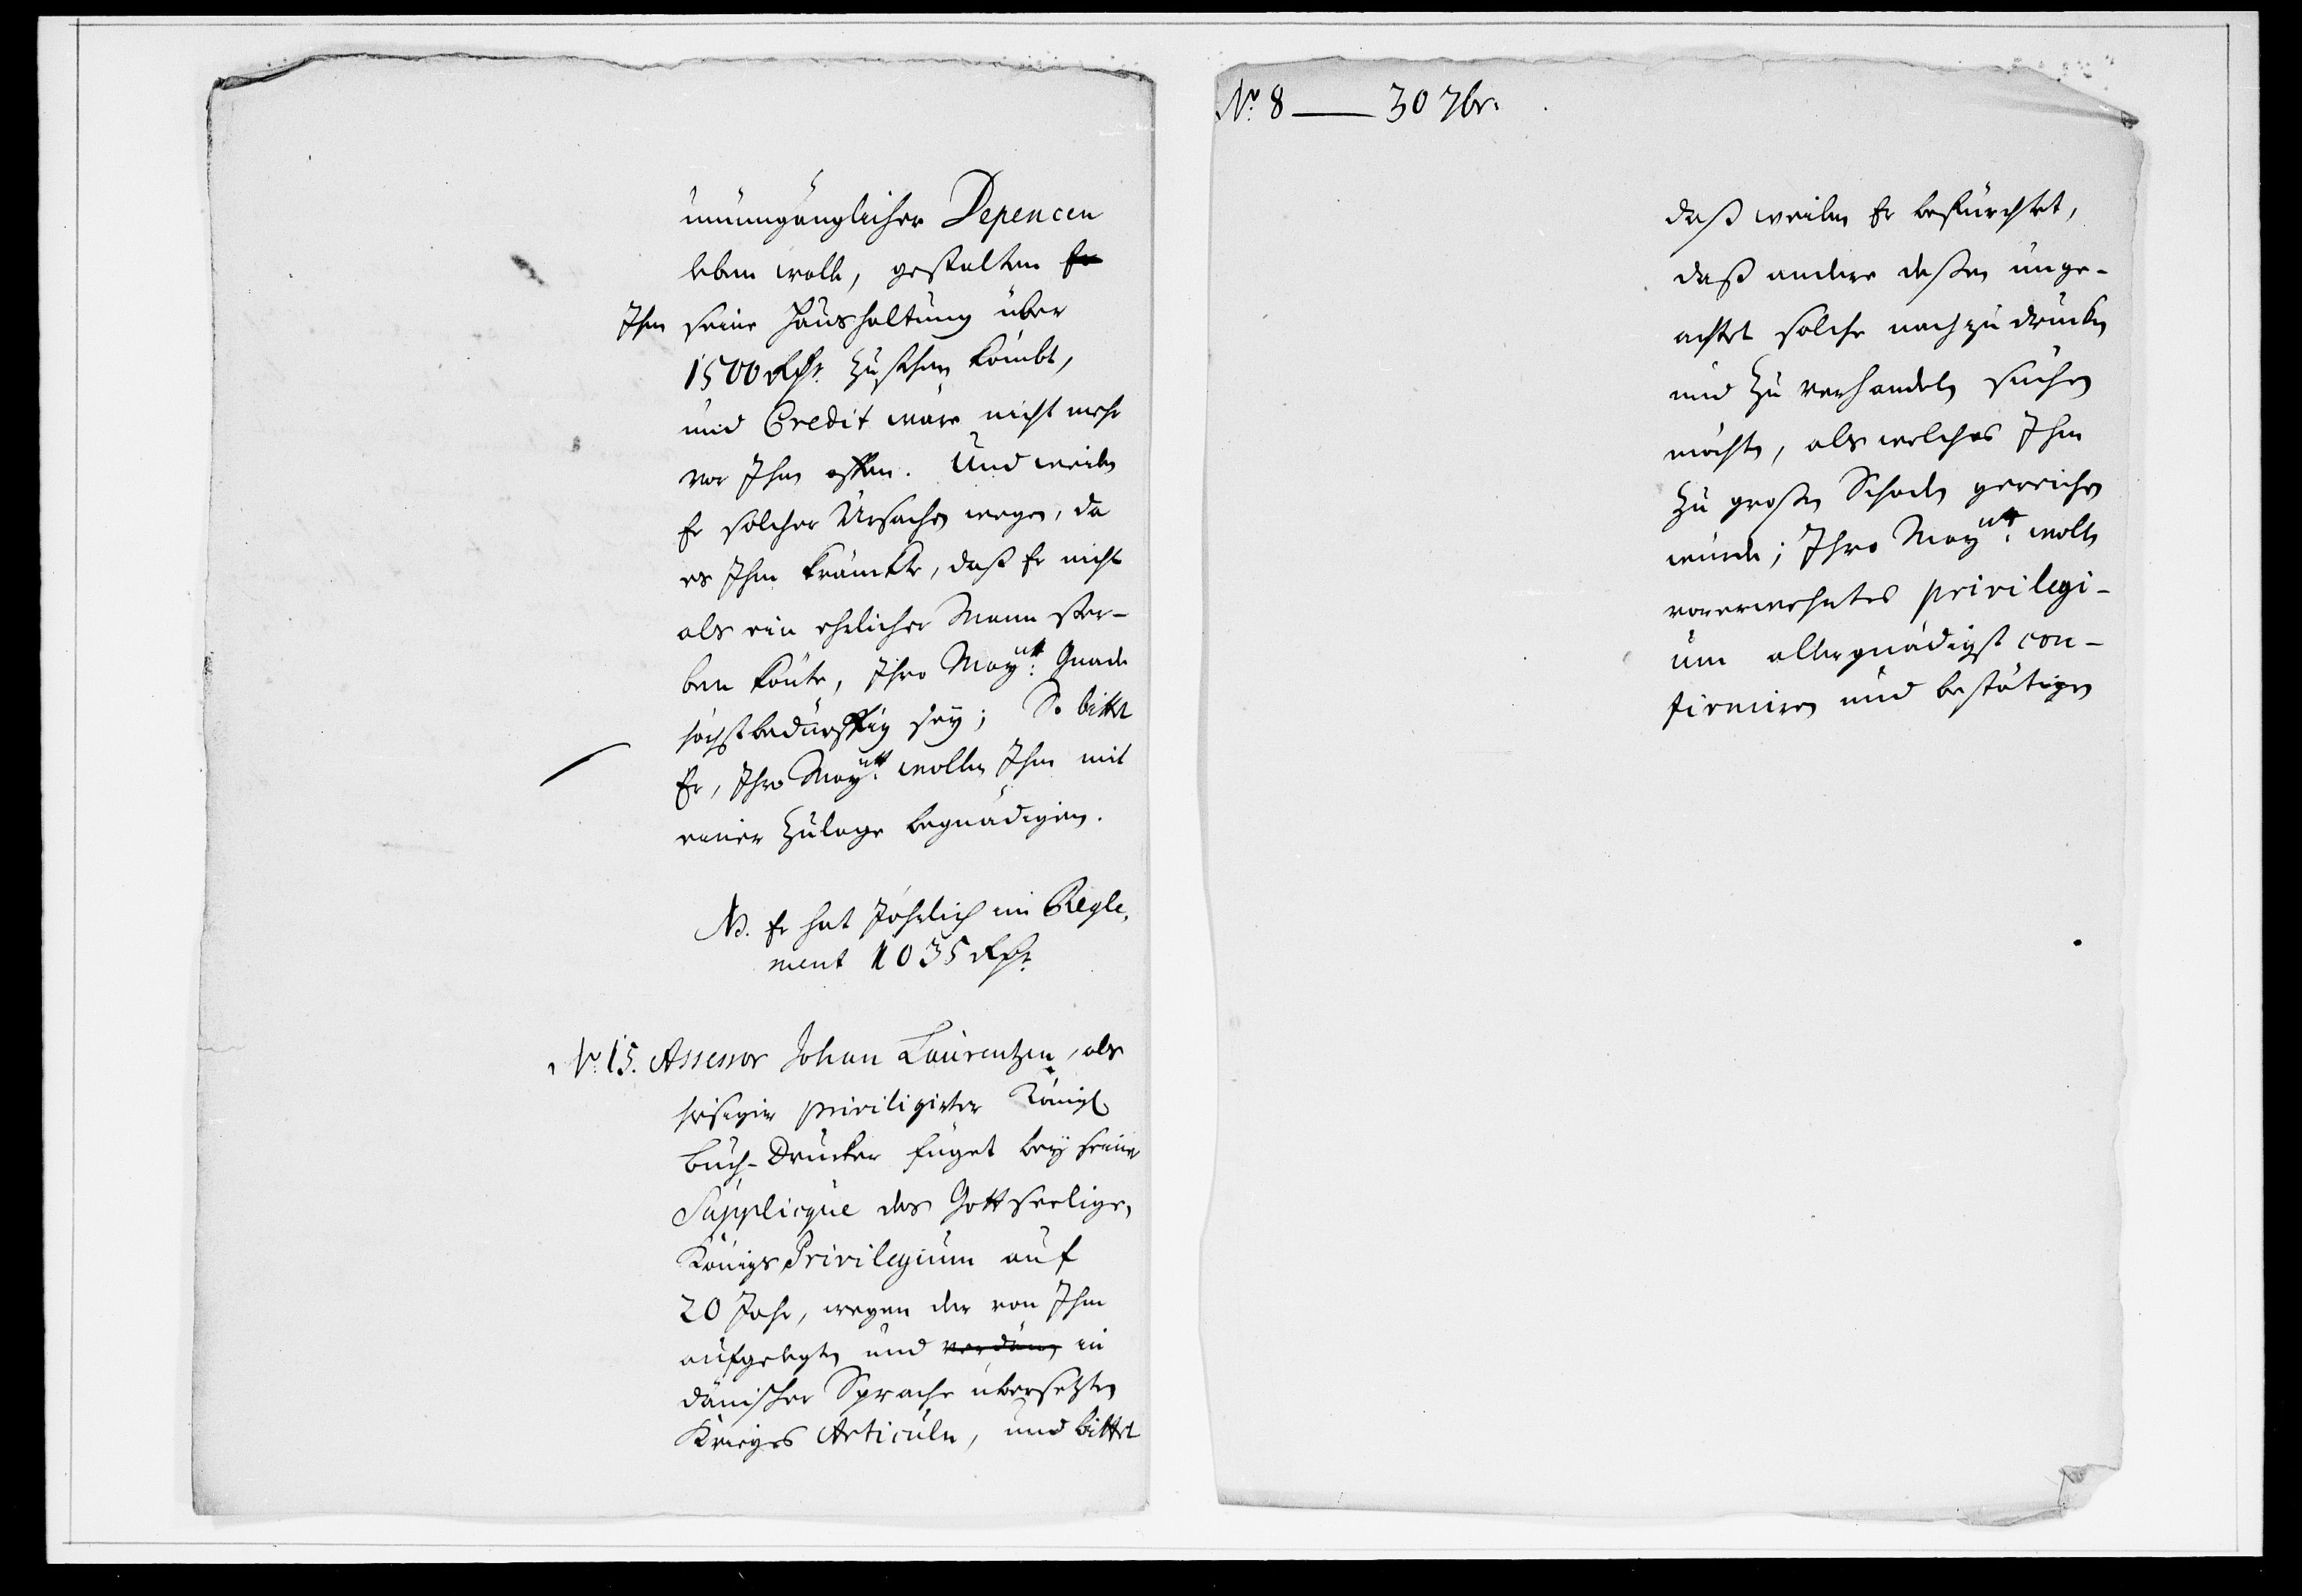 unumgänglicher Depencen
leben wolle, gestalten Er
Ihm seine Haushaltung über
1500 Rthr. zu stehen kömbt,
und Credit wäre nicht mehr
vor Ihm offen. Und weiln
Er solcher Ursachen wegen, da
es Ihm kränckte, daß Er nicht
als ein ehrlicher Mann ster-
ben könte, Ihro Maytt: Gnade
höchstbedürfftig sey; So bittet
Er, Ihro Maytt: wollen Ihm mit
einer Zulage begnädigen.
NB. Er hat Jährlich im Regle,
ment 1035 Rthr.
No. 15. Assessor Johan Laurentzen, als
hiesiger priviligirter Königl.
Buch-Drucker füget bey seiner
Supplicque des Gottseeligen
Königs Privilegium auf
20 Jahr, wegen der von Ihm
aufgelegten und in
dänischer Sprache übersetzten
Krieges Articuln, und bittet
No. 8 — 30 7br.
daß weiln Er befürchtet,
daß andere deßen unge-
achtet solche nachzudrucken
und zu verhandeln suchen
möchten, als welches Ihm
zu großen Schaden gereichen
würde; Ihro Maytt: wollen
vorerwehntes privilegi-
um allergnädigst con-
firmiren und bestätigen